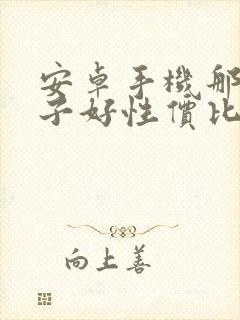 安卓手機那
子好性價比
向上善